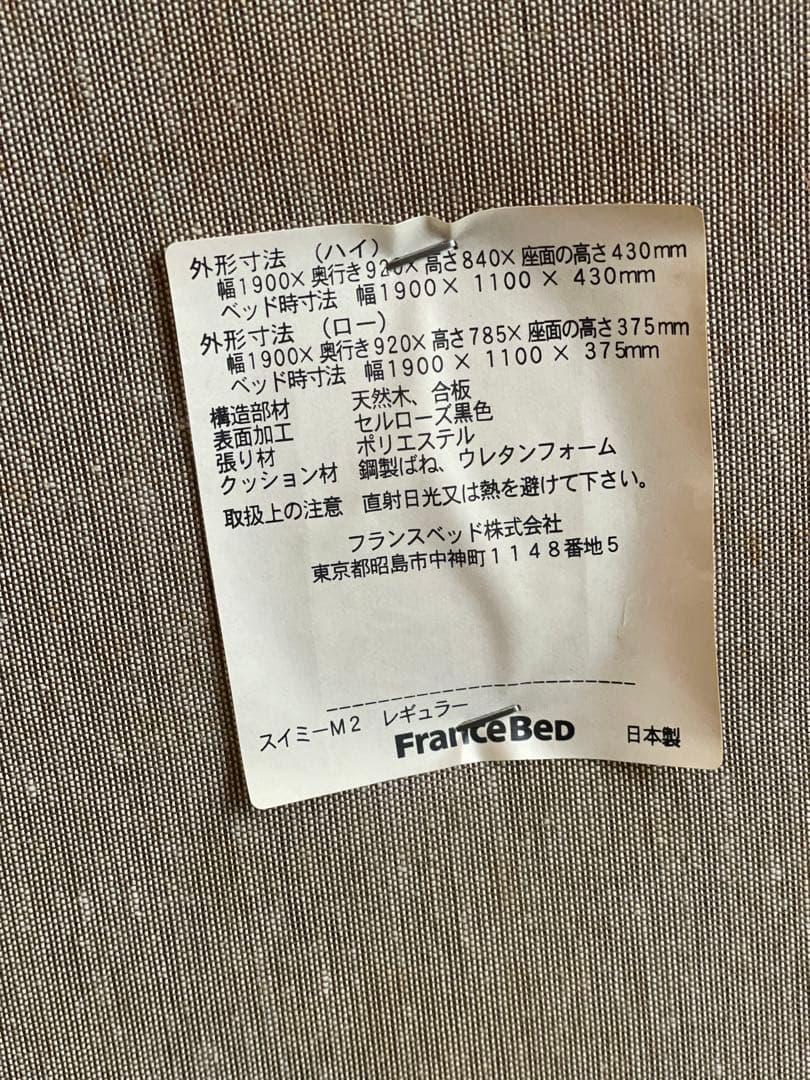 外形寸法 (ハイ)
幅1900×奥行き920×高さ840×座面の高さ430mm
ベッド時寸法 幅1900×1100×430mm
外形寸法 (ロー)
幅1900×奥行き920×高さ785×座面の高さ375mm
ベッド時寸法 幅1900×1100×375mm
構造部材 天然木、合板
表面加工 セルローズ黒色
張り材 ポリエステル
クッション材 鋼製ばね、ウレタンフォーム
取扱上の注意 直射日光又は熱を避けて下さい。
フランスベッド株式会社
東京都昭島市中神町1148番地5
スイミーM2 レギュラー
FranceBeD 日本製